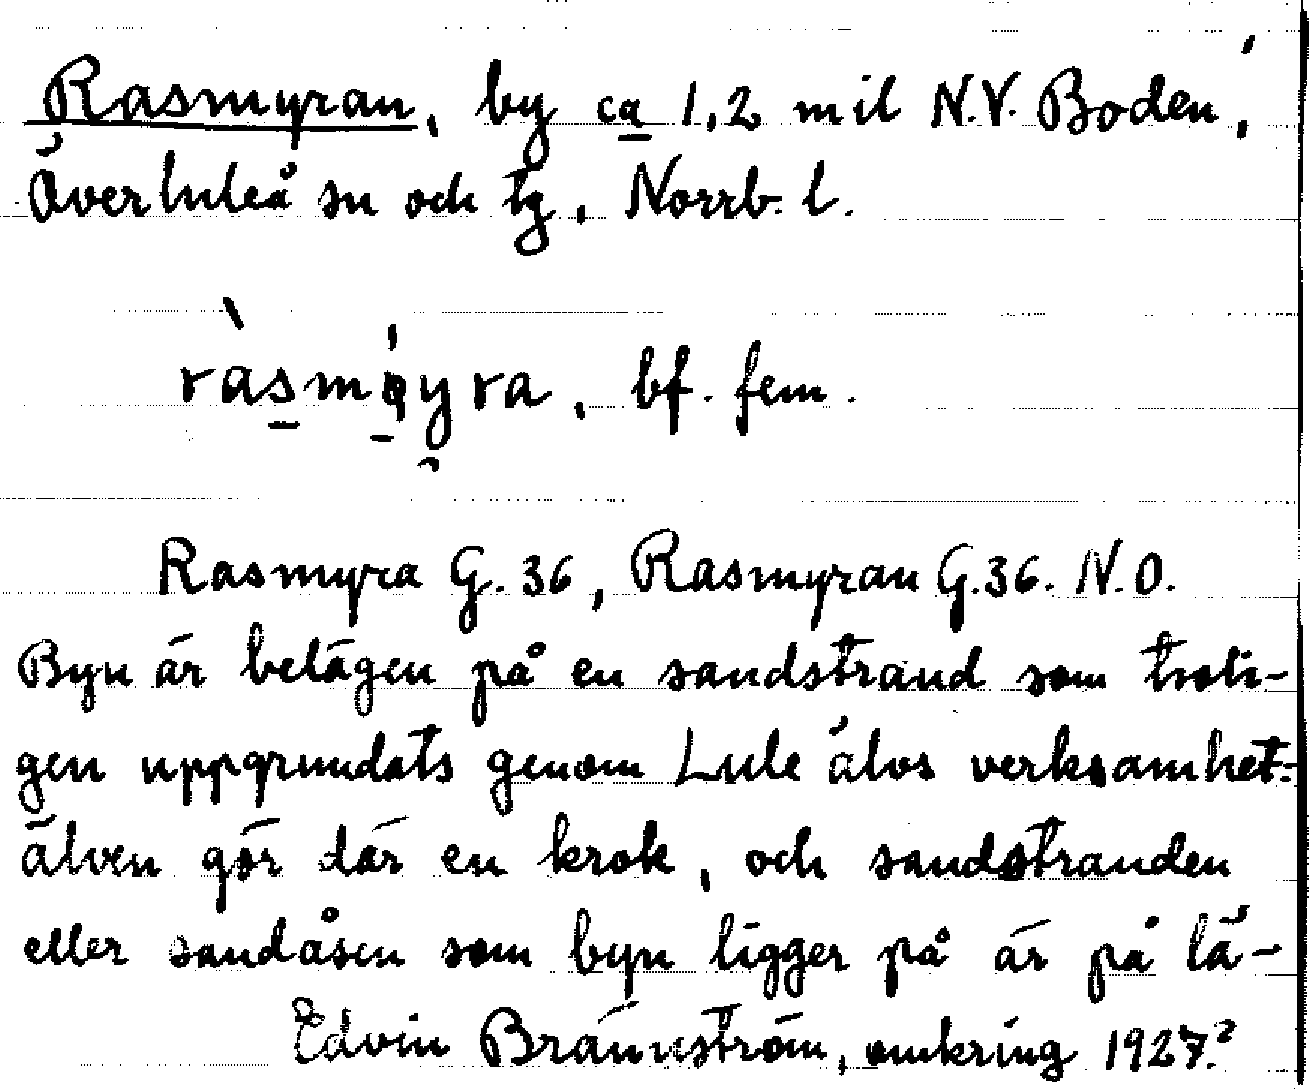 Rasmyran, by ca 1,2 mil N.V. Boden,
Överluleå sn och tg, Norrb. l.
ràsmø̀yra, bf. fem.
Rasmyra G. 36, Rasmyran G.36. N.O.
Byn är belägen på en sandstrand som troli-
gen uppgrundats genom Lule älvs verksamhet:
älven gör där en krok, och sandstranden
eller sandåsen som byn ligger på är på lä-
Edvin Brännström, omkring 1927.?